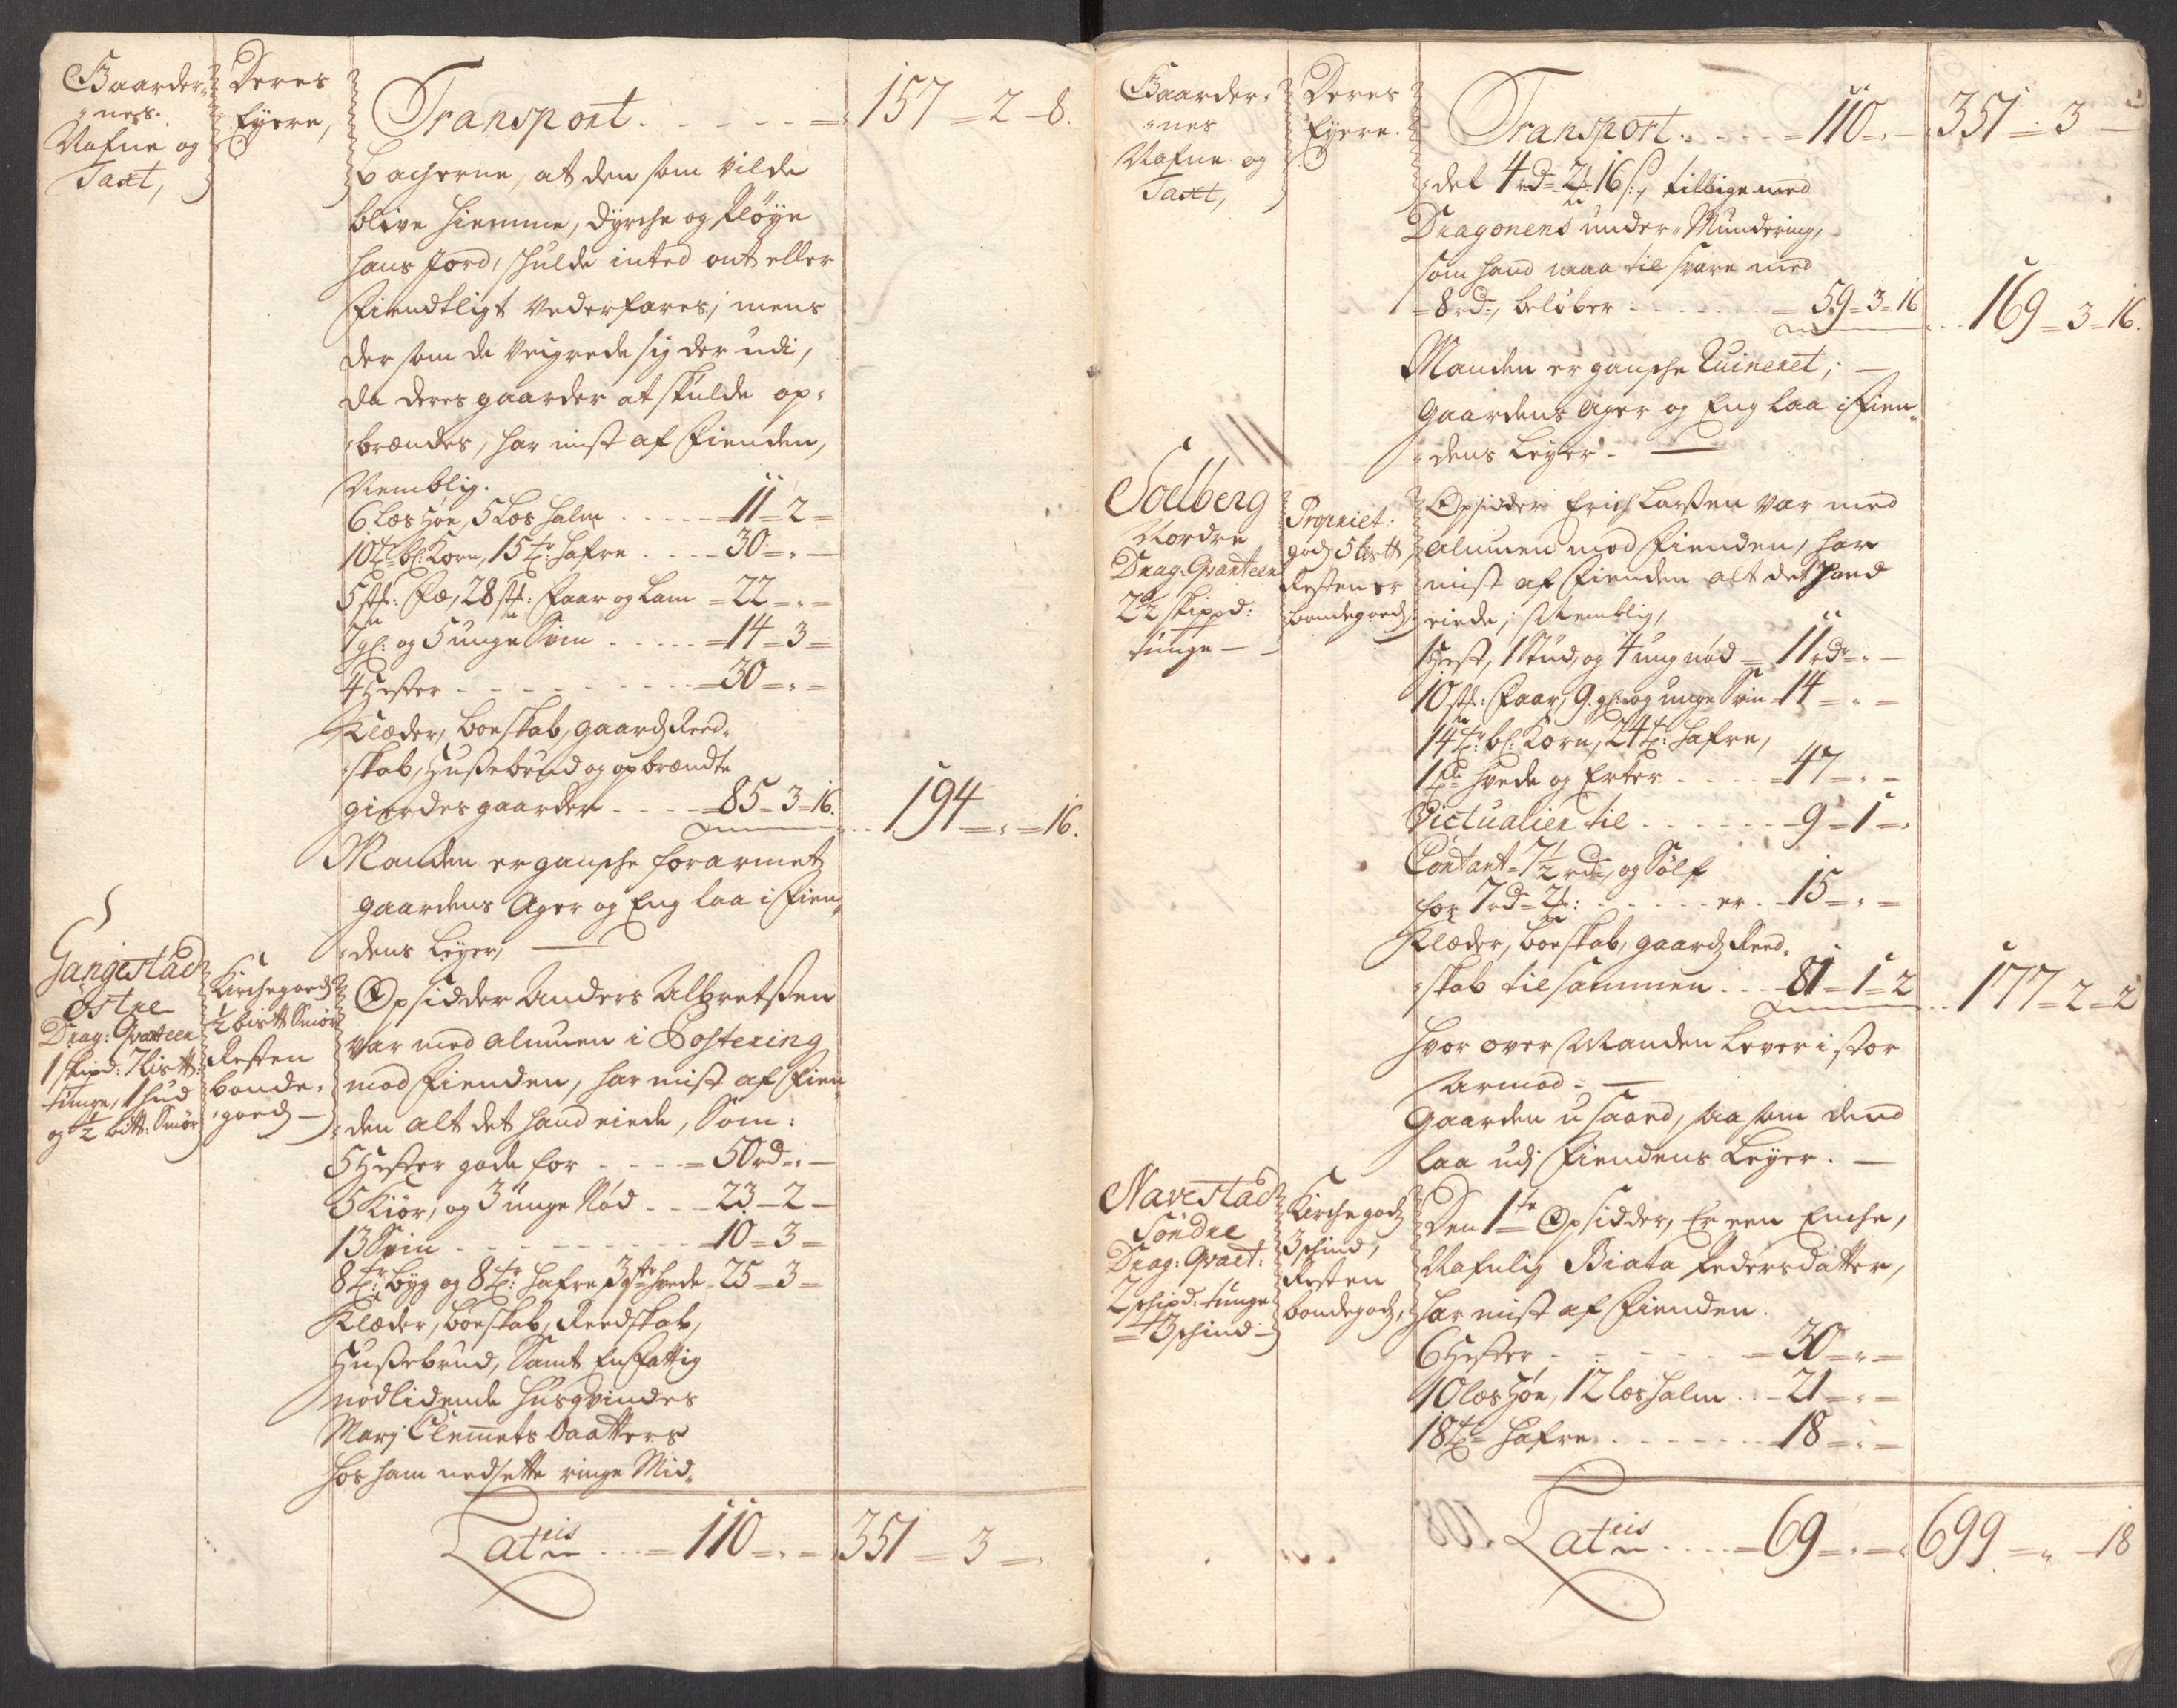 Gaarder-
nes
Nafne og
Taxt,
Deres
Eyere,
Transport 157 - 2 - 8.
bacherne, at den som vilde
blive hiemme, dyrche og Pløye
hans Jord, skulde inted ont eller
Fiendtligt vederfares; mens
der som de veigrede sig der udi,
da deres gaarder at skulde op-
brændes, har mist af Fienden,
Nemblig.
6 Læs Høe, 5 Læs halm 11 - 2 -
10 tr bl: Korn, 15 tr: hafre 30 - " -
5 st: Fæ, 28 st: Faar og Lam 22 - " -
7 gl: og 5 unge Svin 14 - 3 -
4 Hester 30 - " -
Klæder, boeskab, gaards Reed-
skab, Hussebund og opbrændte
gierdes gaarder 85 - 3 - 16. 194 - " - 16.
Manden er gansche forarmet
gaardens Ager og Eng laa i Fien-
dens Leyer,
Gangestad
østre
Drag: Qvarteer
1 skipd: 7 Lis tt:
tunge, 1 hud
og 1/2 bitt: Smør
Kirchegoeds
1/2 bis tt Smør
Resten
bonde-
goeds
Opsidder Anders Albretssen
var med almuen i Postering
mod Fienden, har mist af Fien-
den alt det hand eiede, Som:
5 Hester gode for 50 rd - " -
5 Kiør, og 3 unge Nød 23 - 2 -
13 Svin 10 - 3 -
8 tr: byg og 8 tr: hafre 3 hvede 25 - 3 -
Klæder, boeskab, Reedskab,
Hussebund, Samt En Fattig
nødlidende husqvindes
Marj Clemets Daatters
hos ham nedsette ringe Mid-
Lateris 110 - " - 351 - 3 -
Gaarder-
nes
Nafne og
Taxt,
Deres
Eyere.
Transport 110 - " - 351 - 3 -
del 4 rd 2 16 s:, tillige med
Dragonens under Mundering,
som hand maa til svare med
8 rd, beløber 59 - 3 - 16 169 - 3 - 16.
Manden er gansche Ruineret;
Gaardens Ager og Eng laa i Fien-
dens Leyer.
Soelberg
Nordre
Drag. Qvarteer
2 1/2 skippd:
tunge
Propriet:
gods 5 Lis tt,
Resten er
bondegoeds
Opsidder Erich Larssen var med
almuen mod Fienden, har
mist af Fienden alt det Hand
eiede, Nemblig,
1 Hest, 1 Stud, og 4 ung nød 11 rd - " -
10 st: Faar, 9 gl: og unge Svin 14 - " -
14 tr: bl: Korn, 24 tr: hafre,
1 hvede og Erter 47 - " -
Victualier til 9 - 1 -
Contant 7 1/2 rd, og Sølf
for 7 rd 2: er 15 - " -
Klæder, boeskab, gaards Reed-
skab tilsammen 81 - 1 - 2 177 - 2 - 2
hvor over Manden Lever i stor
Armod.
Gaarden u saaed, saa som dend
laa udj Fiendens Leyer.
Navestad
Søndre
Drag: Qvart:
2 schipd. tunge
4 3 schind
Kirche gods
3 schind,
Resten
bondegods,
Den 1te Opsidder, Er een Enche,
Nafnlig Biata Pedersdatter,
har mist af Fienden.
6 Hester 30 - " -
10 læs Høe, 12 læs halm 21 - " -
18 tr hafre 18 - " -
Lateris 69 - " - 699 - " - 18